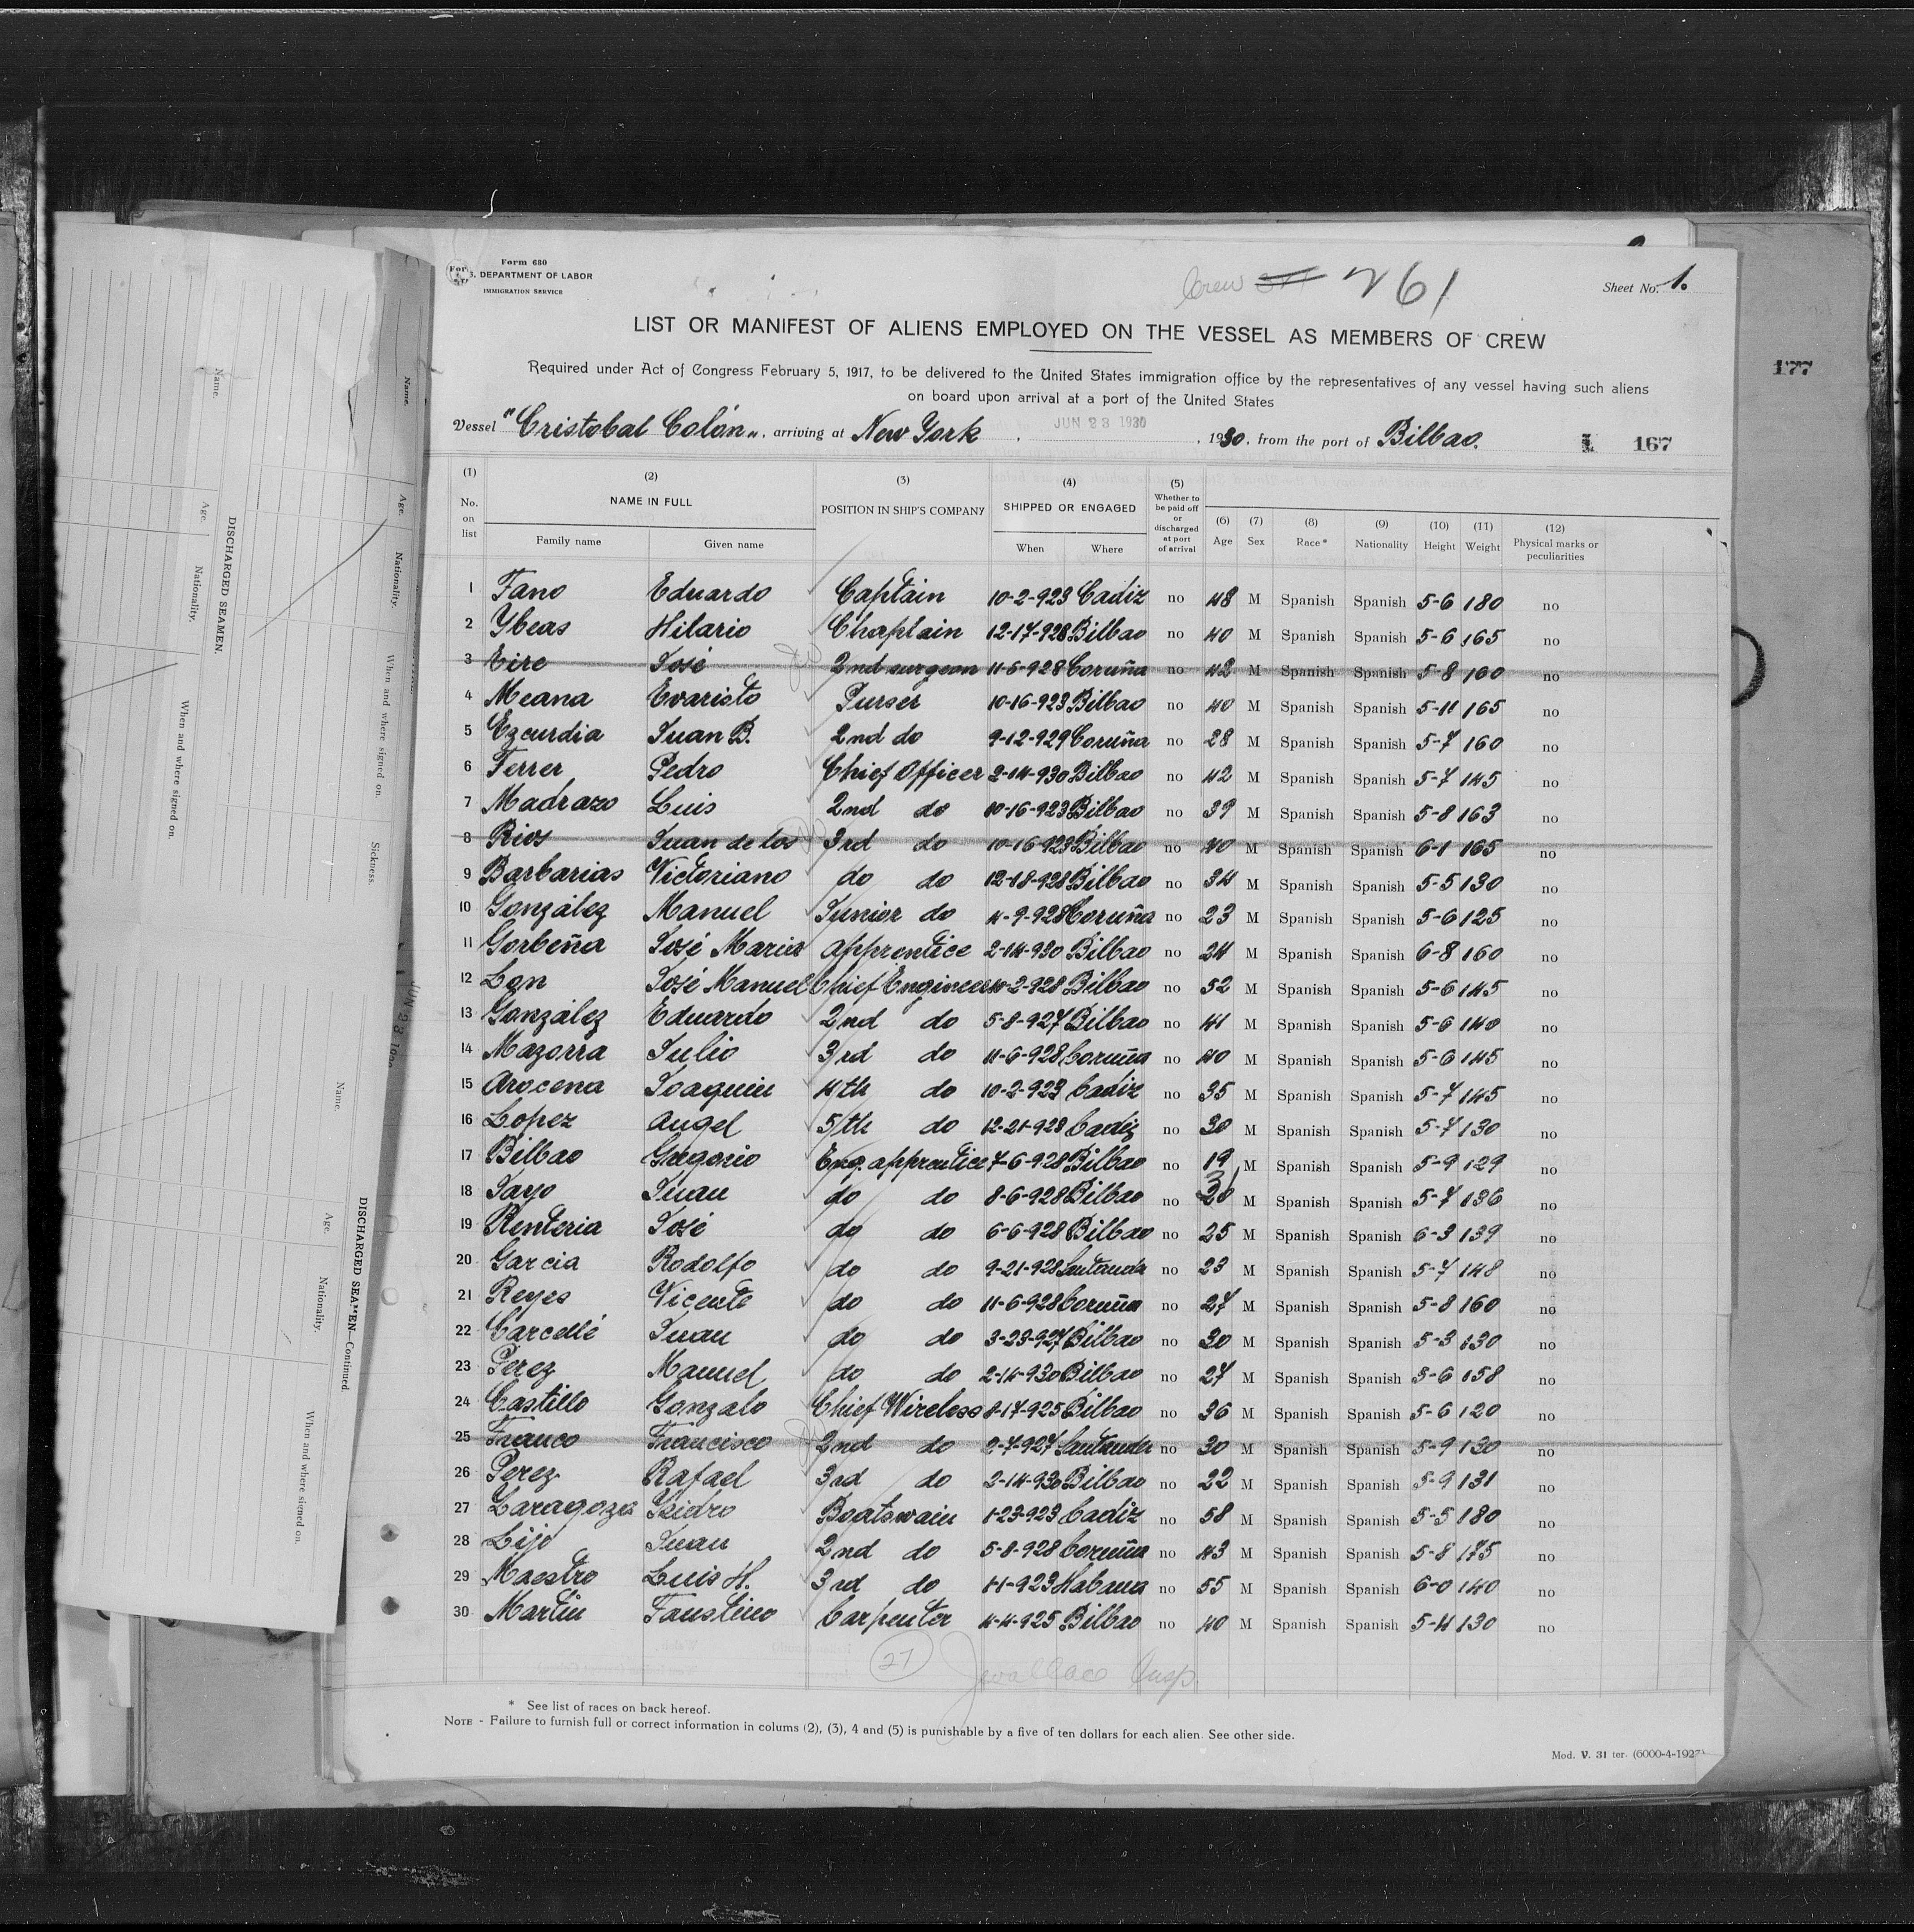 Form 680
S. DEPARTMENT OF LABOR
IMMIGRATION SERVICE
Crew 261
Sheet No. 1.
LIST OR MANIFEST OF ALIENS EMPLOYED ON THE VESSEL AS MEMBERS OF CREW
Required under Act of Congress February 5, 1917, to be delivered to the United States immigration office by the representatives of any vessel having such aliens
on board upon arrival at a port of the United States
177
Vessel "Cristobal Colón", arriving at New York, JUN 23 1930, 1930, from the port of Bilbao. 167
(1) No. on list (2) NAME IN FULL Family name Given name (3) POSITION IN SHIP'S COMPANY (4) SHIPPED OR ENGAGED When Where (5) Whether to be paid off or discharged at port of arrival (6) Age (7) Sex (8) Race* (9) Nationality (10) Height (11) Weight (12) Physical marks or peculiarities
1 Fano Eduardo Captain 10-2-923 Cadiz no 48 M Spanish Spanish 5-6 180 no
2 Ybeas Hilario Chaplain 12-17-928 Bilbao no 40 M Spanish Spanish 5-6 165 no
3 Eire José 2nd surgeon 11-6-928 Coruña no 42 M Spanish Spanish 5-8 160 no
4 Meana Evaristo Purser 10-16-923 Bilbao no 40 M Spanish Spanish 5-11 165 no
5 Ezcurdia Juan B. 2nd do 9-12-929 Coruña no 28 M Spanish Spanish 5-7 160 no
6 Ferrer Pedro Chief Officer 2-14-930 Bilbao no 42 M Spanish Spanish 5-7 145 no
7 Madrazo Luis 2nd do 10-16-923 Bilbao no 39 M Spanish Spanish 5-8 163 no
8 Rios Juan de los 3rd do 10-16-923 Bilbao no 40 M Spanish Spanish 6-1 165 no
9 Barbarias Victoriano do do 12-18-928 Bilbao no 34 M Spanish Spanish 5-5 130 no
10 González Manuel Junior do 4-9-928 Coruña no 23 M Spanish Spanish 5-6 125 no
11 Gorbeña José Maria apprentice 2-14-930 Bilbao no 24 M Spanish Spanish 6-8 160 no
12 José Manuel Chief Engineer 10-2-928 Bilbao no 52 M Spanish Spanish 5-6 145 no
13 González Eduardo 2nd do 5-8-927 Bilbao no 41 M Spanish Spanish 5-6 140 no
14 Mazorra Julio 3rd do 11-6-928 Coruña no 40 M Spanish Spanish 5-6 145 no
15 Arocena Joaquin 4th do 10-2-923 Cadiz no 35 M Spanish Spanish 5-7 145 no
16 Lopez Angel 5th do 12-21-928 Cadiz no 30 M Spanish Spanish 5-7 130 no
17 Bilbao Gregorio Eng. apprentice 7-6-928 Bilbao no 19 M Spanish Spanish 5-9 129 no
18 Juan do do 8-6-928 Bilbao no M Spanish Spanish 5-7 136 no
19 Renteria José do do 6-6-928 Bilbao no 25 M Spanish Spanish 6-3 139 no
20 Garcia Rodolfo do do 9-21-928 Santander no 23 M Spanish Spanish 5-7 148 no
21 Reyes Vicente do do 11-6-928 Coruña no 27 M Spanish Spanish 5-8 160 no
22 Carcellé Juan do do 3-23-927 Bilbao no 30 M Spanish Spanish 5-3 130 no
23 Perez Manuel do do 2-14-930 Bilbao no 27 M Spanish Spanish 5-6 158 no
24 Castillo Gonzalo Chief Wireless 8-17-925 Bilbao no 36 M Spanish Spanish 5-6 120 no
25 Franco Francisco 2nd do 2-7-927 Santander no 30 M Spanish Spanish 5-9 130 no
26 Perez Rafael 3rd do 2-14-930 Bilbao no 22 M Spanish Spanish 5-9 131 no
27 Zaragoza Ysidro Boatswain 1-23-923 Cadiz no 58 M Spanish Spanish 5-5 180 no
28 Lijo Juan 2nd do 5-8-928 Coruña no 43 M Spanish Spanish 5-8 175 no
29 Maestro Luis H. 3rd do 1-1-923 Habana no 55 M Spanish Spanish 6-0 140 no
30 Martin Faustino Carpenter 4-4-925 Bilbao no 40 M Spanish Spanish 5-4 130 no
27 Jwallace Insp.
* See list of races on back hereof.
NOTE - Failure to furnish full or correct information in colums (2), (3), 4 and (5) is punishable by a five of ten dollars for each alien. See other side.
Mod. V. 31 ter. (6000-4-1927)
DISCHARGED SEAMEN.
Name. Age. Nationality. When and where signed on.
Name. Age. Nationality. When and where signed on. Sickness.
DISCHARGED SEAMEN—Continued.
Name. Age. Nationality. When and where signed on.